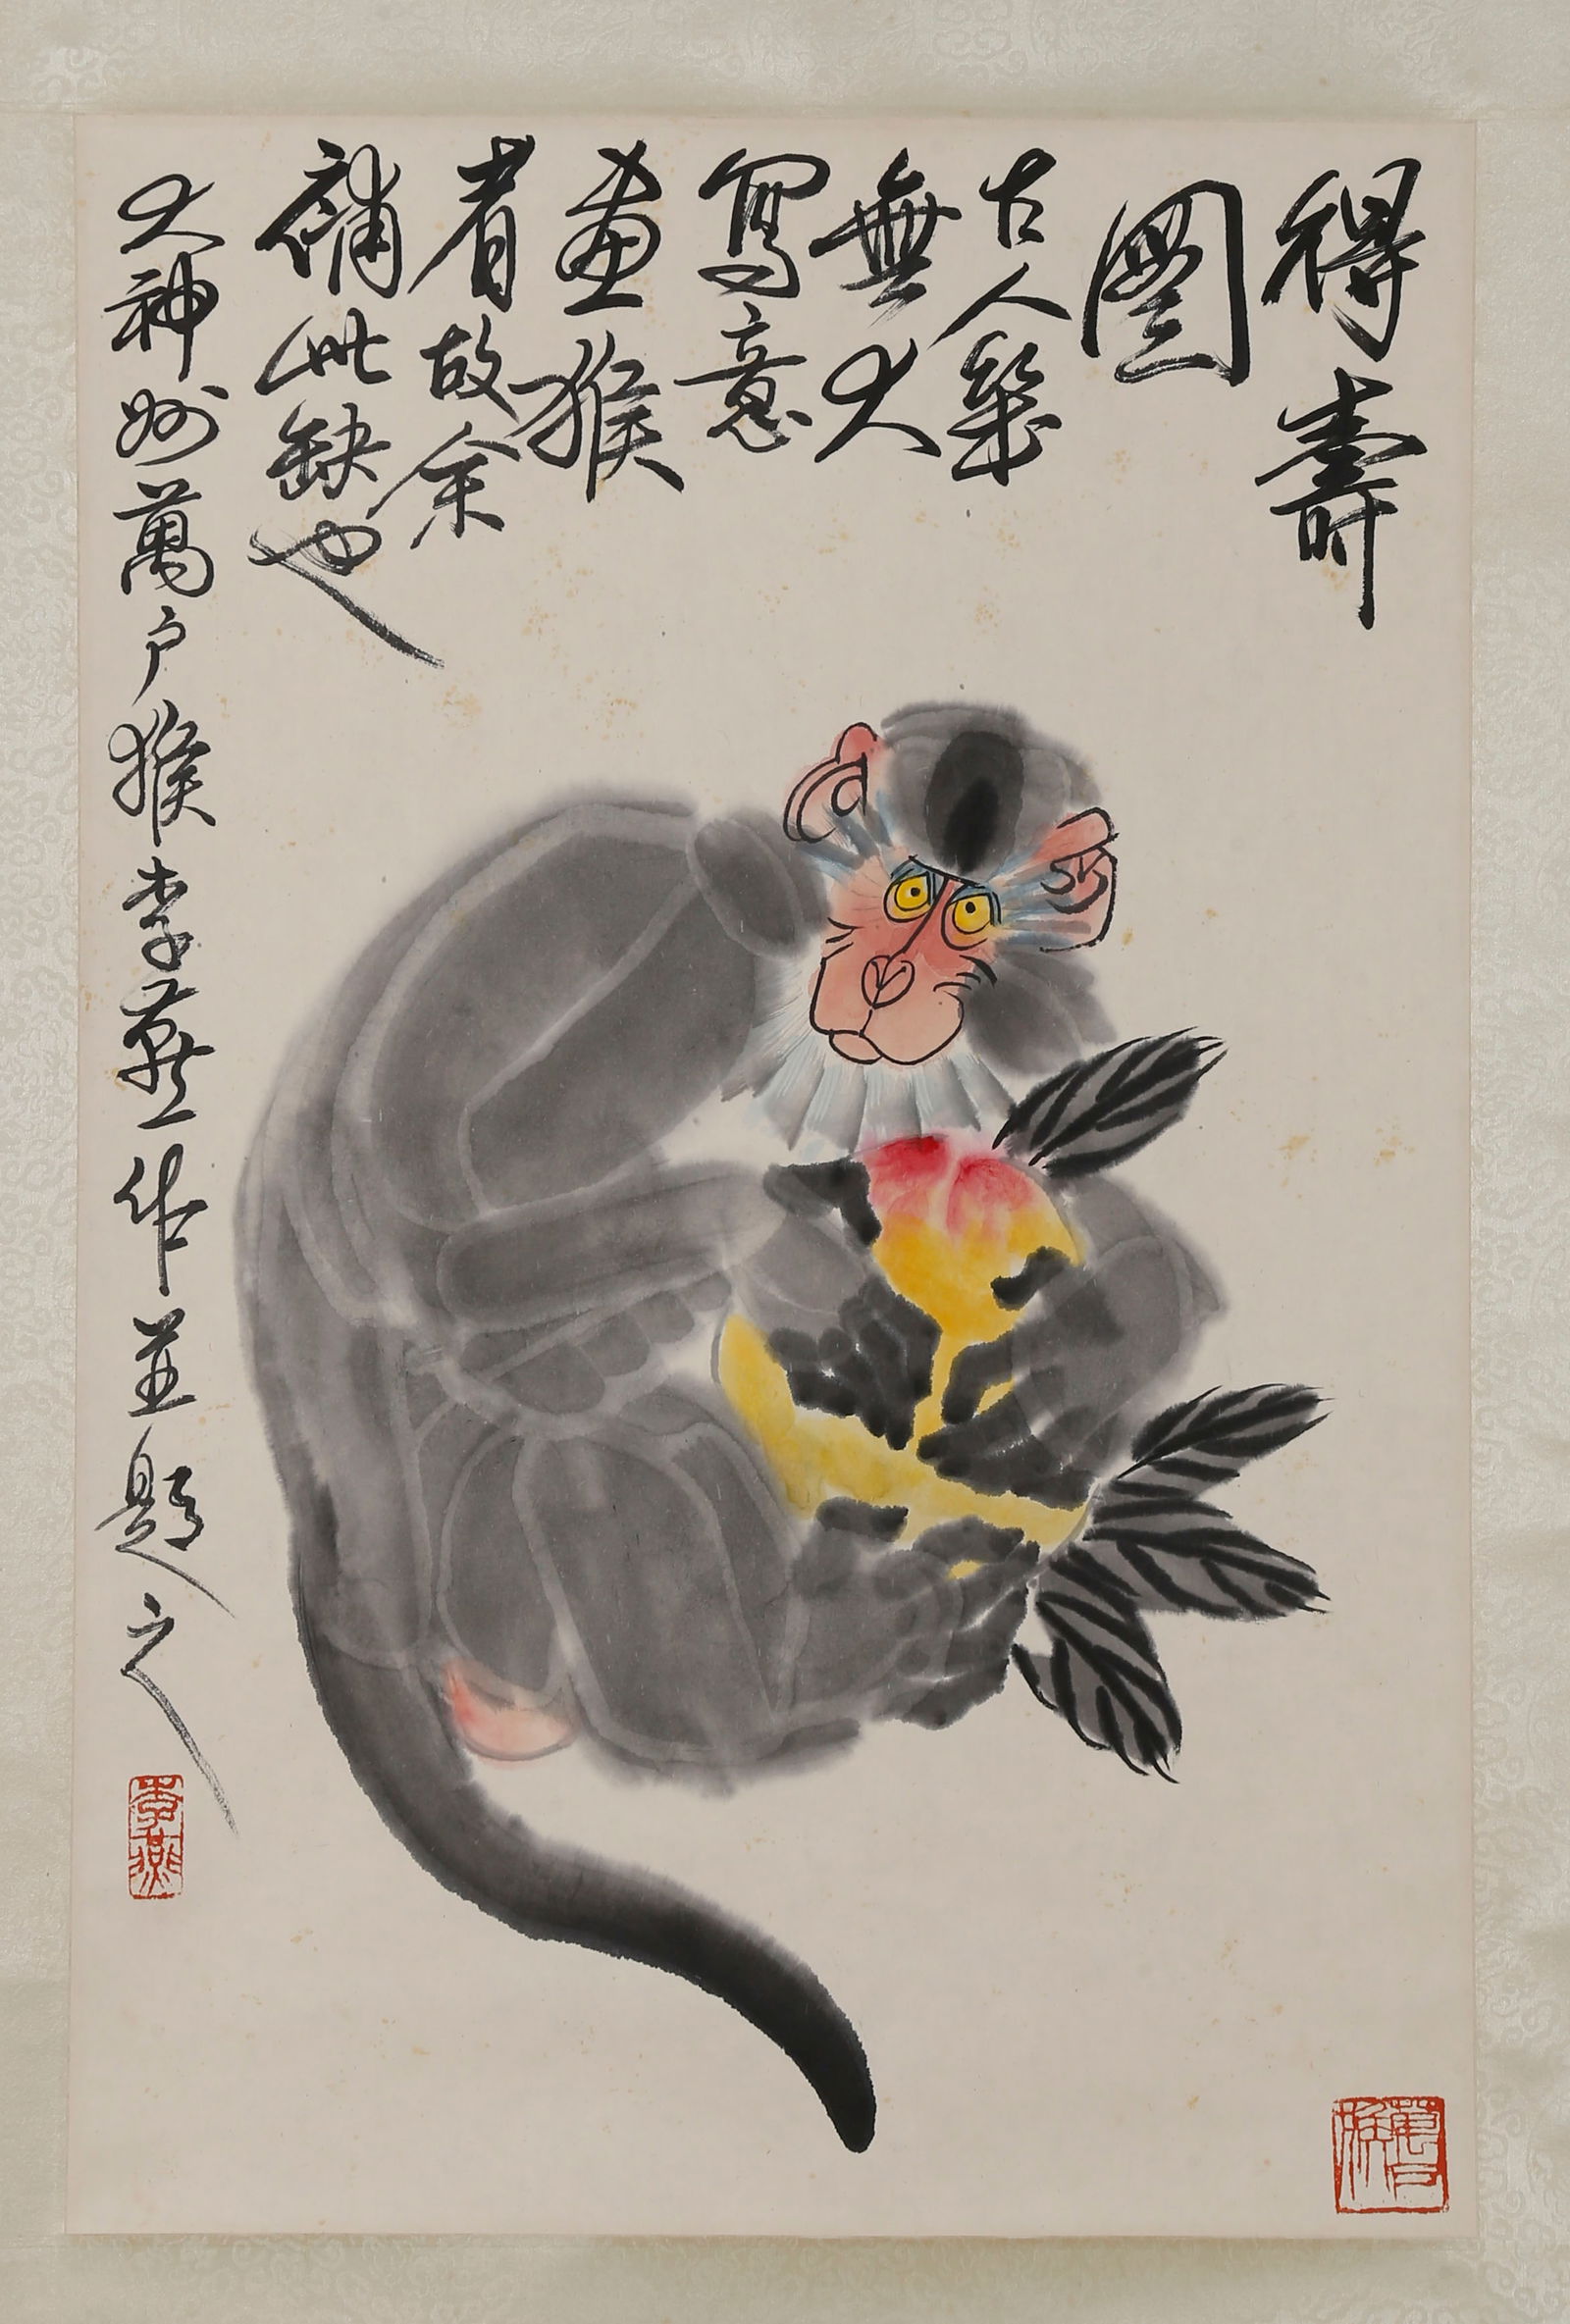 得壽
圖
古人幾
無大
寫意
畫猴
者故余
補此缺也
大神州萬户猴李燕作並題之
李燕
萬户猴